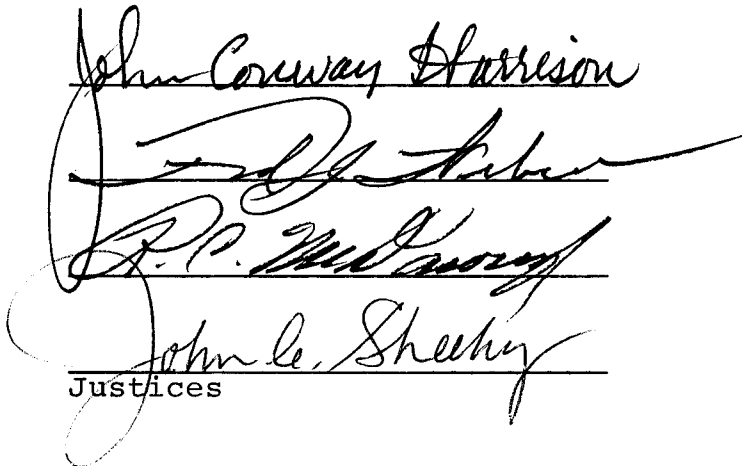 John Conway Harrison
Fred J. Weber
R. C. McDonough
John C. Sheehy
Justices